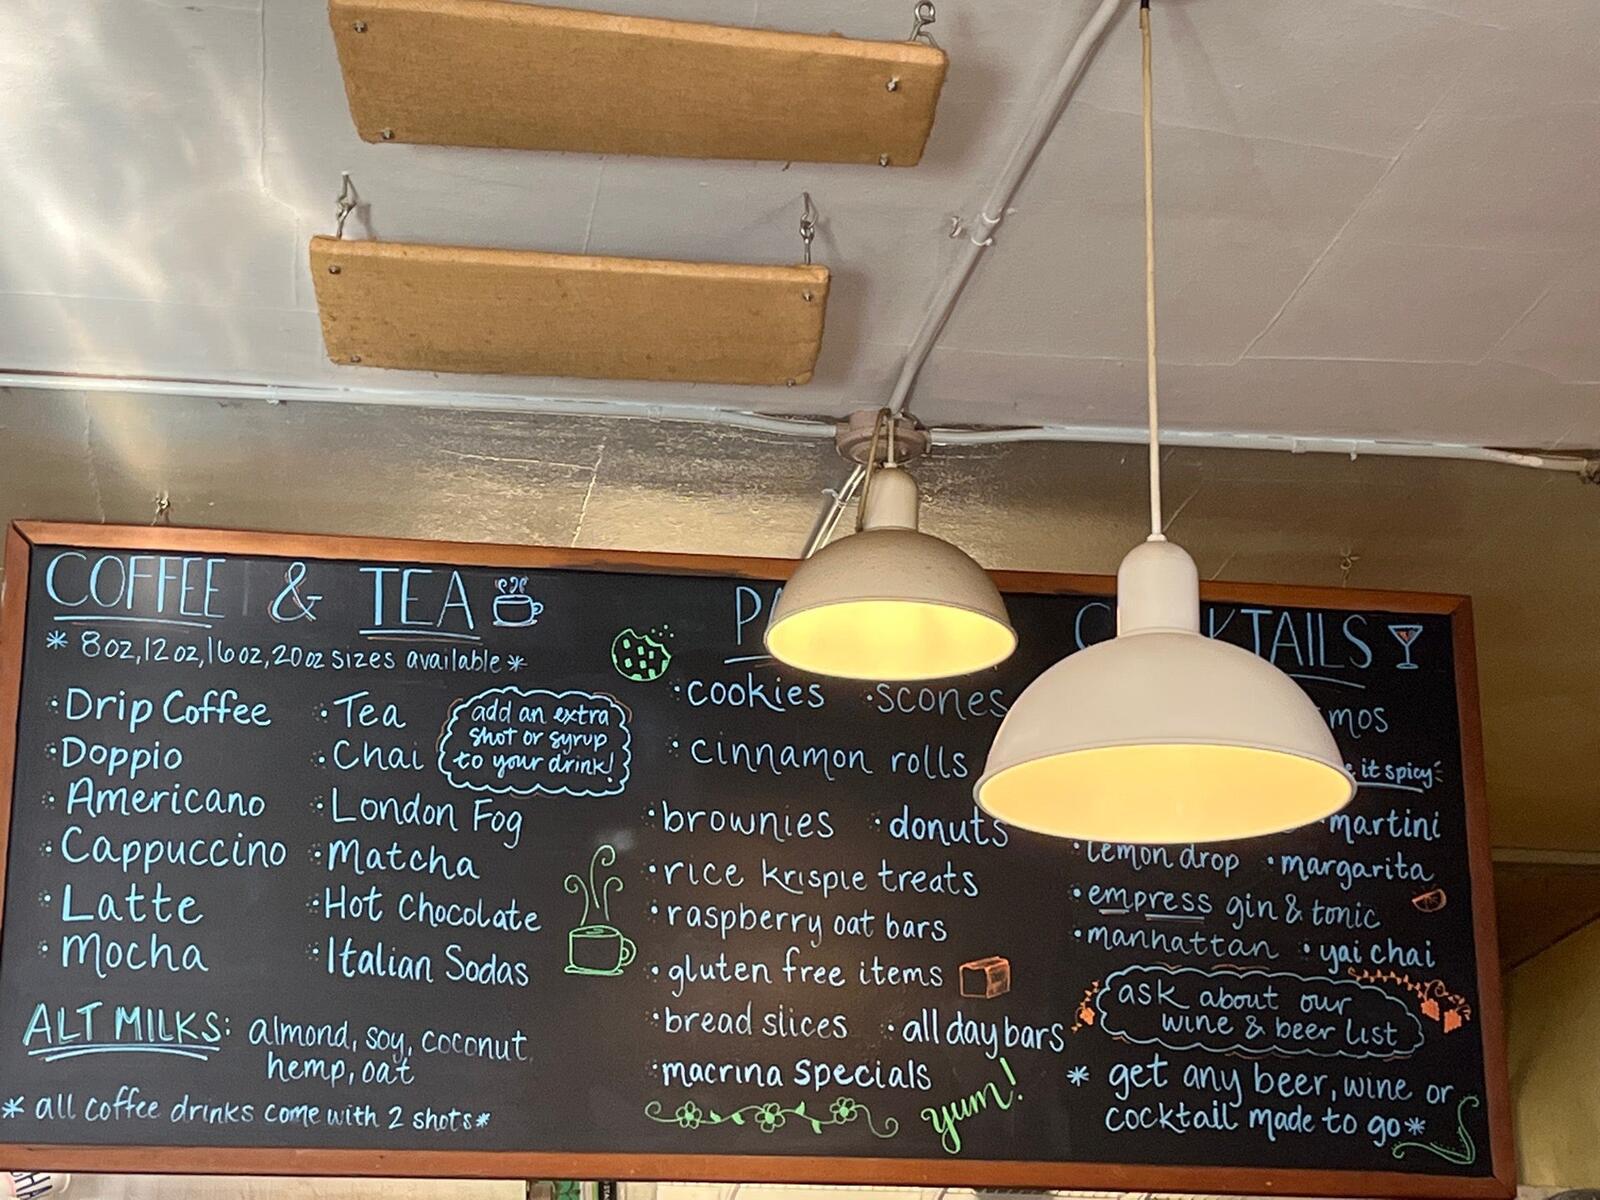 COFFEE & TEA
* 8oz, 12oz, 16oz, 20oz sizes available *
Drip Coffee
Doppio
Americano
Cappuccino
Latte
Mocha
Tea
Chai
London Fog
Matcha
Hot Chocolate
Italian Sodas
add an extra
shot or syrup
to your drink!
ALT MILKS: almond, soy, coconut,
hemp, oat
* all coffee drinks come with 2 shots *
cookies scones
cinnamon rolls
brownies donuts
rice krispie treats
raspberry oat bars
gluten free items
bread slices all day bars
macrina specials
yum!
it spicy
martini
lemon drop margarita
empress gin & tonic
manhattan yai chai
ask about our
wine & beer list
* get any beer, wine or
cocktail made to go *